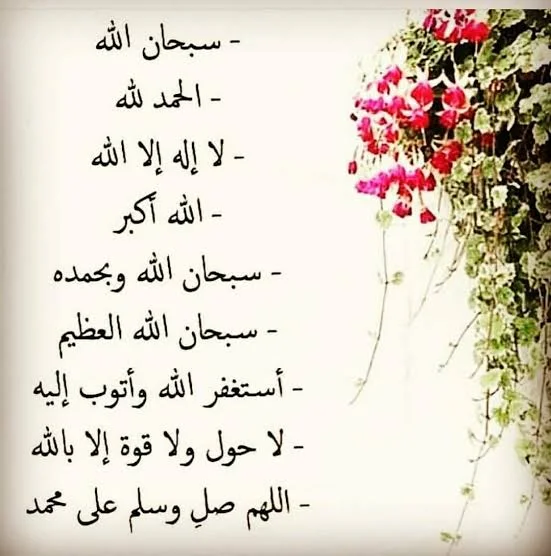 - سبحان الله
- الحمد لله
- لا إله إلا الله
- الله أكبر
- سبحان الله وبحمده
- سبحان الله العظيم
- أستغفر الله وأتوب إليه
- لا حول ولا قوة إلا بالله
- اللهم صلِ وسلم على محمد